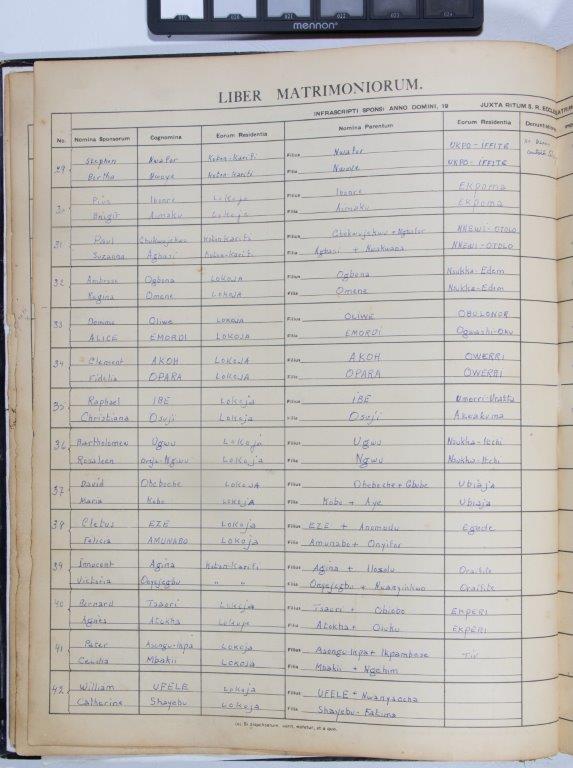 mennon
LIBER MATRIMONIORUM.
INFRASCRIPTI SPONSI ANNO DOMINI, 19 JUXTA RITUM S. R. ECCLESIAE
No. Nomina Sponsorum Cognomina Eorum Residentia Nomina Parentum Eorum Residentia Denuntiationes
29. Stephen Nwafor Koton-Karifi Filius Nwafor UKPO-IFFITE
Bertha Nwoye Koton-Karifi Filia Nwoye UKPO-IFFITE
30 Pius Lokoja Filius EKPOMA
Brigit Aimaku Lokoja Filia Aimaku EKPOMA
31 Paul Chukwujekwu Koton-Karifi Filius Chukwujekwu + NNEWI-OTOLO
Suzanna Agbasi Koton-Karifi Filia Agbasi + Nwakwana NNEWI-OTOLO
32 Ambrose Ogbona LOKOJA Filius Ogbona Nsukka-Edem
Regina Omene LOKOJA Filia Omene Nsukka-Edem
33 Oliwe LOKOJA Filius OLIWE OBULONOR
ALICE EMORDI LOKOJA Filia EMORDI Ogwashi-Oku
34 Clement AKOH LOKOJA Filius AKOH OWERRI
Fidelia OPARA LOKOJA Filia OPARA OWERRI
35 Raphael IBE Lokoja Filius IBE
Christiana Osuji Lokoja Filia Osuji Awakuma
36 Bartholomew Ugwu Lokoja Filius Ugwu Nsukka-Itchi
Rosaleen Ngwu Lokoja Filia Ngwu Nsukka-Itchi
37 David Oheboche LOKOJA Filius Oheboche + Gbebe Ubiaja
Maria Kobo LOKOJA Filia Kobo + Aye Ubiaja
38 Cletus EZE Lokoja Filius EZE + Anomudu Egede
Felicia AMUNABO LOKOJA Filia Amunabo + Onyifor
39 Innocent Agina Koton-Karifi Filius Agina + Ilosolu Oraifite
Victoria Onyejegbu " " Filia Onyejegbu + Nwanyinkwo Oraifite
40 Bernard Tsaori Lokoja Filius Tsaori + Obiobo EKPERI
Agnes Atokha Lokoja Filia Atokha + Osuku EKPERI
41 Peter Asongu-Ikpa LOKOJA Filius Asongu-Ikpa + Ikpambese Tiv
Cecilia Mbakii LOKOJA Filia Mbakii + Ngehim
42. William UFELE Lokoja Filius UFELE + Nwanyaocha
Catherine Shayebu LOKOJA Filia Shayebu - Fatima
(a) Si dispensatum fuerit, notetur, et a quo.